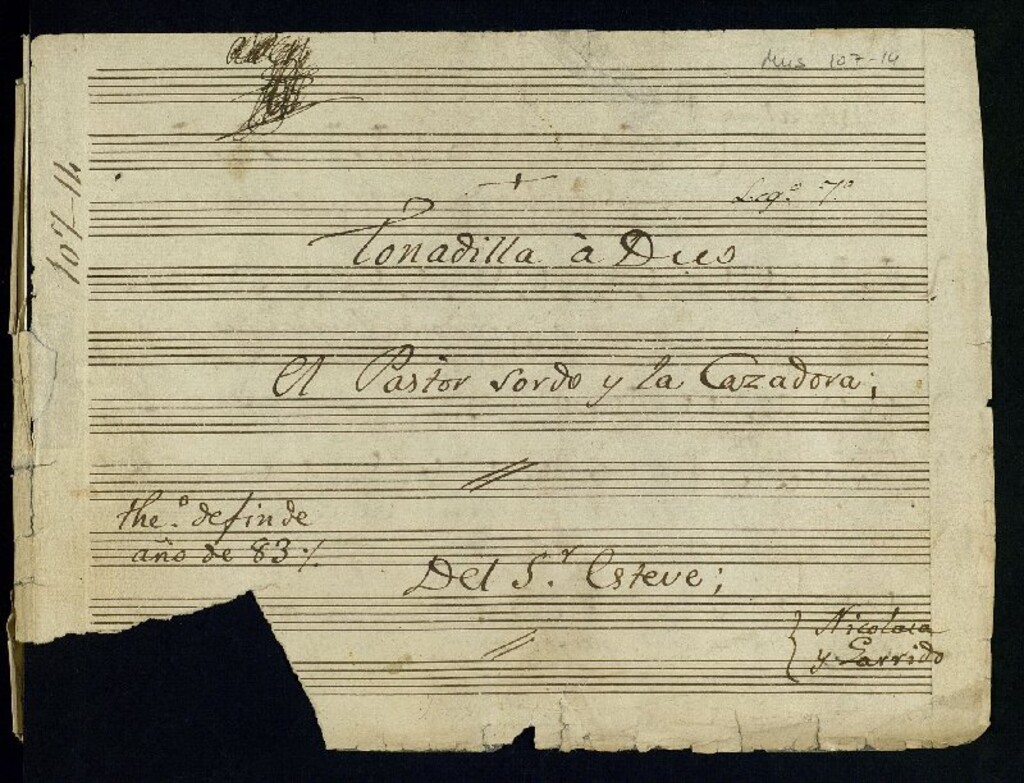 Mus 107-14
107-14
Leg.º 7.º
Tonadilla à Duo
El Pastor sordo y la Cazadora;
the.º de fin de
año de 83·/.
Del S.r Esteve;
Nicolasa
y Garrido